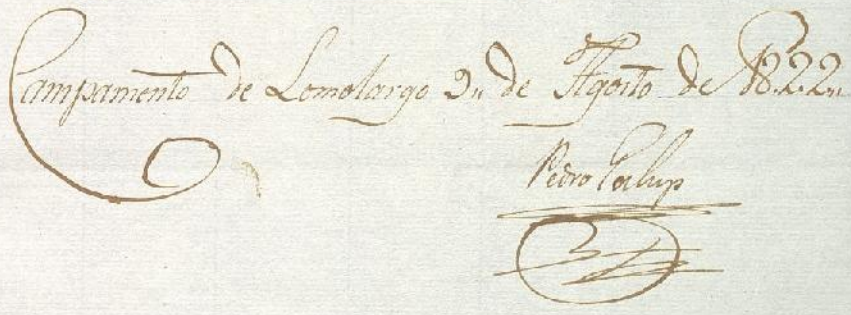 Campamento de Lomolargo 2,, de Agosto de 1822,,
Pedro Galup